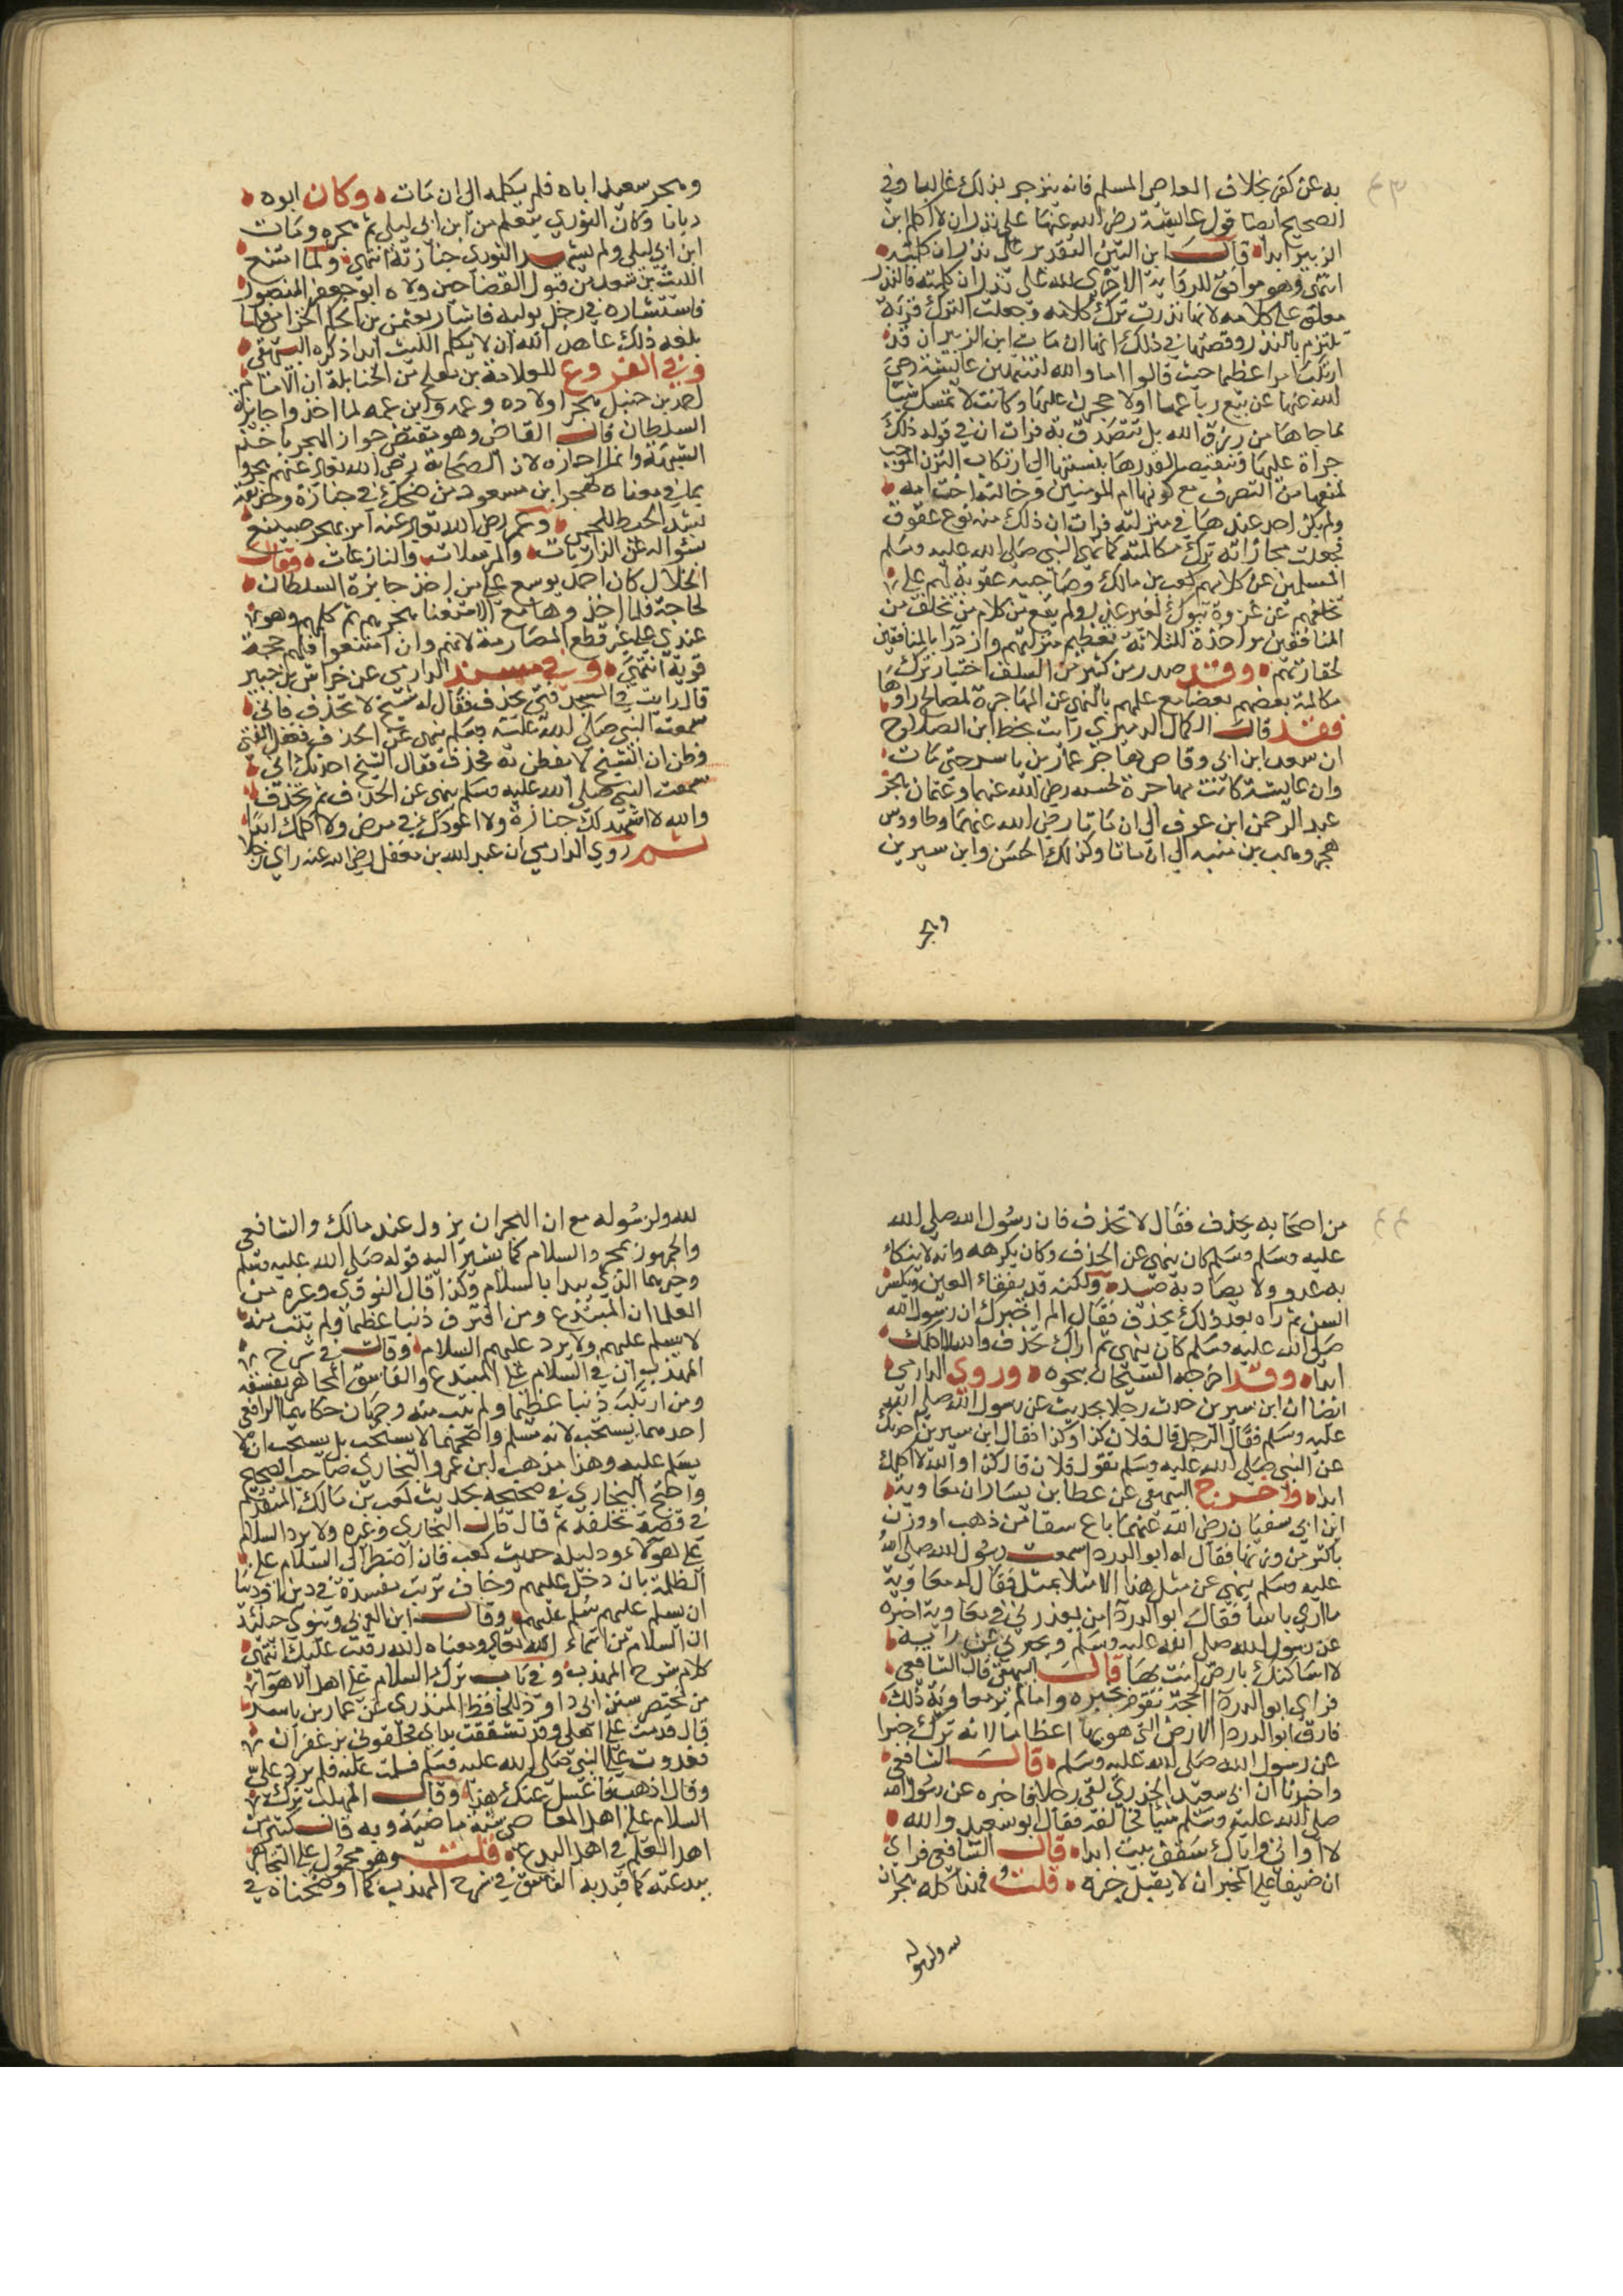 ٤٣
به عن كفره بخلاف العاصي المسلم فانه ينزجر بذلك غالبا وفي
الصحيح ايضا قول عايشة رضي الله عنها على نذر ان لا اكلم ابن
الزبير ابدا قال ابن التين التقدير على نذر ان كلمته
انتهى وهو موافق للرواية الاخرى لله على نذر ان كلمته فالنذر
معلق على كلامه لا انها نذرت ترك كلامه وجعلت الترك قربة
تلتزم بالنذر وقصتها في ذلك انها ان مات ابن الزبير ان قد
ارتكب امرا عظيما حيث قال اما والله لتنتهين عايشة رضي
الله عنها عن بيع رباعها اولا حجرن عليها وكانت لا تمسك شيا
مما جاها من رزق الله بل تتصدق به فرات ان في قوله ذلك
جراة عليها وتنقيصا لقدرها بنسبتها الى ارتكاب التبذير الموجب
لمنعها من التصرف مع كونها ام المومنين وخالته اخت امه
ولم يكن احد عندها في منزلته فرات ان ذلك منه نوع عقوق
فجعلت مجازاته ترك مكالمته كما نهى النبي صلى الله عليه وسلم
المسلمين عن كلامهم كعب بن مالك وصاحبيه عقوبة لهم على
تخلفهم عن غزوة تبوك لغير عذر ولم يمنع من كلام من تخلف من
المنافقين مواخذة للثلاثة لعظيم منزلتهم وازدرا بالمنافقين
لحقارتهم وقد صدر من كثير من السلف اختيار ترك
مكالمة بعضهم بعضا مع علمهم بالنهي عن المهاجرة لمصالح راوها
فقد قال الكمال الدميري رايت بخط ابن الصلاح
ان سعد ابن ابي وقاص هاجر عمار بن ياسر حتى مات
وان عايشة كانت مهاجرة لحفصة رضي الله عنهما وعثمان هجر
عبد الرحمن ابن عوف الى ان ماتا رضي الله عنهما وطاووس
هجر وهب بن منبه الى ان ماتا وكذلك الحسن وابن سيرين
وهجر
وهجر سعيد اباه فلم يكلمه الى ان مات وكان ابوه
زياتا وكان الثوري يتعلم من ابن ابي ليلى ثم هجره ومات
ابن ابي ليلى ولم يشهد الثوري جنازته انتهى ولما امتنع
الليث بن سعد من قبول القضا حين ولاه ابو جعفر المنصور
فاستشاره في رجل يوليه فاشار بعثمن بن الحكم الخزامي فلما
بلغه ذلك عاهد الله ان لا يكلم الليث ابدا ذكره البيهقي
وفي الفروع للعلامة بن مفلح من الحنابلة ان الامام
احمد بن حنبل هجر اولاده وعمه وابن عمه لما اخذوا جايزة
السلطان قال القاضي وهو يقتضي جواز الهجر باخذ
الشبهة وانما اجازه لان الصحابة رضي الله تعالى عنهم هجروا
بما في معناه كهجر ابن مسعود من ضحك في جنازة وحذيفة
بشد الخيط للحمى وعمر رضي الله تعالى عنه امر بهجر صبيغ
بسؤاله عن الذاريات والمرسلات والنازعات وقال
الخلال كان احمد يوسع على من اخذ جايزة السلطان
لحاجة فلما اخذوها مع الاستغنا هجرهم ثم كلمهم وهو
عندي على غير قطع المصارمة لانهم وان امتنعوا فلهم حجة
قوية انتهى وفي مسند الدارمي عن خراش بن جبير
قال رايت في المسجد فتى يخذف فقال له شيخ لا تخذف فاني
سمعت النبي صلى الله عليه وسلم ينهى عن الخذف فغفل الفتى
وظن ان الشيخ لا يفطن به فخذف فقال الشيخ احدثك اني
سمعت النبي صلى الله عليه وسلم ينهى عن الخذف ثم تخذف
والله لا اشهد لك جنازة ولا اعودك في مرض ولا اكلمك ابدا
ثم روي الدارمي ان عبد الله بن مغفل رضي الله عنه راي رجلا
٤٤
من اصحابه يخذف فقال لا تخذف فان رسول الله صلى الله
عليه وسلم وسلم كان ينهى عن الخذف وكان يكرهه وانه لا ينكاء
به عدو ولا يصاد به صيد ولكنه قد يفقاء العين ويكسر
السن ثم راه بعد ذلك يخذف فقال الم اخبرك ان رسول الله
صلى الله عليه وسلم كان ينهى ثم اراك تخذف والله لا اكلمك
ابدا وقد اخرجه الشيخان بنحوه وروى الدارمي
ايضا ان ابن سيرين حدث رجلا بحديث عن رسول الله صلى الله
عليه وسلم فقال الرجل قال فلان كذا وكذا فقال ابن سيرين احدثك
عن النبي صلى الله عليه وسلم تقول فلان قال كذا والله لا اكلمك
ابدا واخرج البيهقي عن عطا بن يسار ان معاوية
ابن ابي سفيان رضي الله عنهما باع سقا من ذهب او ورق
باكثر من وزنها فقال له ابو الدردا سمعت رسول الله صلى الله
عليه وسلم ينهي عن مثل هذا الا مثلا بمثل فقال له معاوية
ما اري باسا فقال ابو الدردا من يعذرني في معاوية اخبره
عن رسول الله صلى الله عليه وسلم ويخبرني عن رايه
لا اساكنك بارض انت بها قال البيهقي قال الشافعي
فراى ابو الدردا الحجة تقوم بخبره ولما لم ير معاوية ذلك
فارق ابو الدردا الارض التي هو بها اعظاما لانه ترك خبرا
عن رسول الله صلى الله عليه وسلم قال الشافعي
واخبرنا ان ابي سعيد الخدري لقي رجلا فاخبره عن رسول الله
صلى الله عليه وسلم شيا فخالفه فقال ابو سعيد والله
لا اواني واياك سقف بيت ابدا قال الشافعي فراى
ان ضيقا على المخبر ان لا يقبل خبره قلت فهذا كله هجران
لله ولرسوله
لله ولرسوله مع ان الهجران يزول عند مالك والشافعي
والجمهور بمجرد السلام كما يشير اليه قوله صلى الله عليه وسلم
وخيرهما الذي يبدا بالسلام وكذا قال النووي وغيره من
العلما ان المبتدع ومن اقترف ذنبا عظيما ولم يتب منه
لا يسلم عليهم ولا يرد عليهم السلام وقال في شرح
المهذب وان في السلام على المبتدع والفاسق المجاهر بفسقه
ومن ارتكب ذنبا عظيما ولم يتب منه وجهان حكاهما الرافعي
احدهما يستحب لانه مسلم واصحهما لا يستحب بل يستحب ان لا
يسلم عليه وهذا مذهب ابن عمر والبخاري صاحب الصحيح
واحتج البخاري في صحيحه بحديث كعب بن مالك المتقدم
في قصة تخلفه ثم قال قال البخاري وغيره ولا يرد السلام
على هولاء ودليله حديث كعب فان اضطر الى السلام على
الظلمة بان دخل عليهم وخاف ترتب مفسدة في دين او دنيا
ان لم يسلم عليهم سلم عليهم وقال ابن العربي وينوي حينئذ
ان السلام من اسماء الله تعالى ومعناه الله رقيب عليك انتهى
كلام شرح المهذب وفي باب ترك السلام على اهل الاهواء
من مختصر سنن ابي داود للحافظ المنذري عن عمار بن ياسر
قال قدمت على اهلي وقد تشققت يداي فخلقوني بزعفران
فغدوت على النبي صلى الله عليه وسلم فسلمت عليه فلم يرد علي
وقال اذهب فاغسل عنك هذا وقال المهلب ترك
السلام على اهل المعاصي سنة ماضية وبه قال كثير من
اهل العلم في اهل البدع قلت وهو محمول على التجاهر
ببدعته كما قيد به الفاسق في شرح المهذب كما اوضحناه في